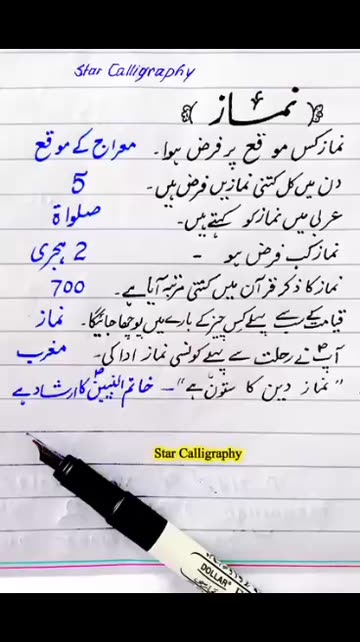 Star Calligraphy
نماز
نماز کس موقع پر فرض ہوا۔ معراج کے موقع
دن میں کل کتنی نمازیں فرض ہیں۔ 5
عربی میں نماز کو کہتے ہیں۔ صلواۃ
نماز کب فرض ہو - 2 ہجری
نماز کا ذکر قرآن میں کتنی مرتبہ آیا ہے۔ 700
قیامت کے سب سے پہلے کس چیز کے بارے میں پوچھا جائیگا۔ نماز
آپؐ نے رحلت سے پہلے کونسی نماز ادا کی۔ مغرب
"نماز دین کا ستون ہے"۔ خاتم النبیینؐ کا ارشاد ہے
Star Calligraphy
DOLLAR